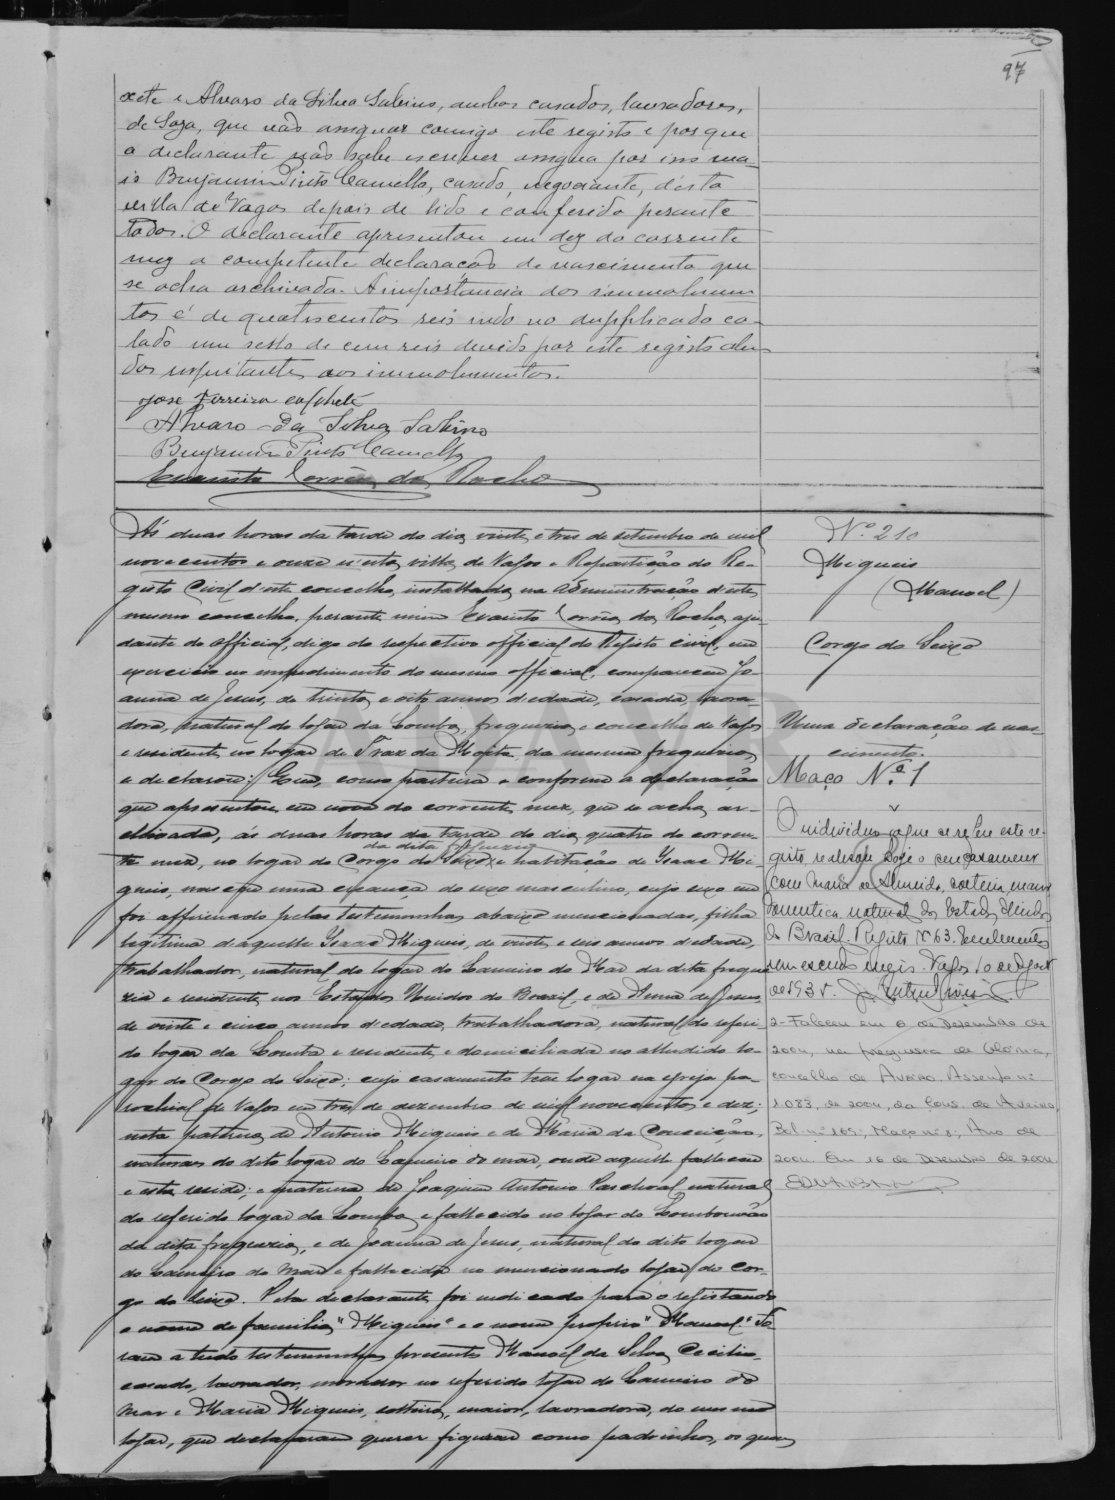 97
xete e Alvaro da Silva Sabino, ambos casados, lavradores,
de Soza, que vão assignar comigo este registo e porque
a declarante não sabe escrever assigna por ins
Benjamim Pinto Camello, casado, negociante, d'esta
villa de Vagos depois de lido e conferido perante
todos. O declarante apresentou em dez do corrente
mez a competente declaração de nascimento que
se acha archivada. A importancia dos emmolumen
tos é de quatrocentos reis indo no duplicado co-
lado um sello de cem reis devido por este registo
dos respeitantes aos emmolumentos.
José Ferreira
Alvaro da Silva Sabino
Benjamim Pinto Camello
Evaristo Corrêa da Rocha
Ás duas horas da tarde do dia vinte e tres de setembro de mil
novecentos e onze n'esta villa de Vagos e Repartição do Re-
gisto Civil d'este concelho, installada na administração d'este
mesmo concelho, perante mim Evaristo Corrêa da Rocha, aju-
dante do official, digo do respectivo official do Registo civil, em
exercicio no impedimento do mesmo official, compareceu Jo-
anna de Jesus, de trinta e oito annos d'edade, casada, lavra-
dora, natural do logar da Lomba, freguezia e concelho de Vagos
e residente no logar de Traz da Mata da mesma freguezia
e declarou: Que, como parteira e conforme a declaração
que apresentou em nove do corrente mez, que se acha ar-
chivada, ás duas horas da tarde do dia quatro do corren-
te mez, no logar do Corgo do Seixo da dita freguezia e habitação de Isaac Mi-
gueis, nasceu uma creança do sexo masculino, cujo sexo me
foi affirmado pelas testemunhas abaixo mencionadas, filha
legitima d'aquelle Isaac Migueis, de vinte e seis annos d'edade,
trabalhador, natural do logar do Cameiro do Mar da dita fregue
zia e residente nos Estados Unidos do Brazil, e de Anna de Jesus,
de vinte e cinco annos d'edade, trabalhadora, natural do referi-
do logar da Lomba e residente e domiciliada no alludido lo-
gar do Corgo do Seixo; cujo casamento teve logar na egreja pa-
rochial de Vagos em tres de dezembro de mil novecentos e dez;
neta paterna de Antonio Migueis e de Maria da Conceição,
naturaes do dito logar do Cameiro do mar, onde aquelle falleceu
e esta reside; e materna de Joaquim Antonio Paschoal natural
do referido logar da Lomba e fallecido no logar do
da dita freguezia, e de Joanna de Jesus, natural do dito logar
do Cameiro do Mar e fallecida no mencionado logar do Cor-
go do Seixo. Pela declarante foi indicado para o registando
o nome de familia "Migueis" e o nome proprio "Manoel". Fo-
ram a tudo testemunhas presentes Manoel da Silva Cecilio,
casado, lavrador, morador no referido logar do Cameiro do
Mar e Maria Migueis, solteira, maior, lavradora, do mesmo
logar, que declararam querer figurar como padrinhos, os quaes
Nº 210
Migueis
(Manoel)
Corgo do Seixo
Uma declaração de nas-
cimento.
Maço Nº 1
O individuo a que se refere este re-
gisto realisou hoje o seu casamento
com Maria de Almeida, solteira, maior
domestica natural dos Estados Unidos
do Brasil. Registo Nº 63. Emolumentos
um escudo Vagos 10 de
de 1935.
2- Faleceu em 6 de Dezembro de
2004, na freguesia de Glória,
concelho de Aveiro. Assento nº
1083, de 2004, da Cons. de Aveiro.
Bol. nº 165, Maço nº 8, Ano de
2004. Em 16 de Dezembro de 2004.